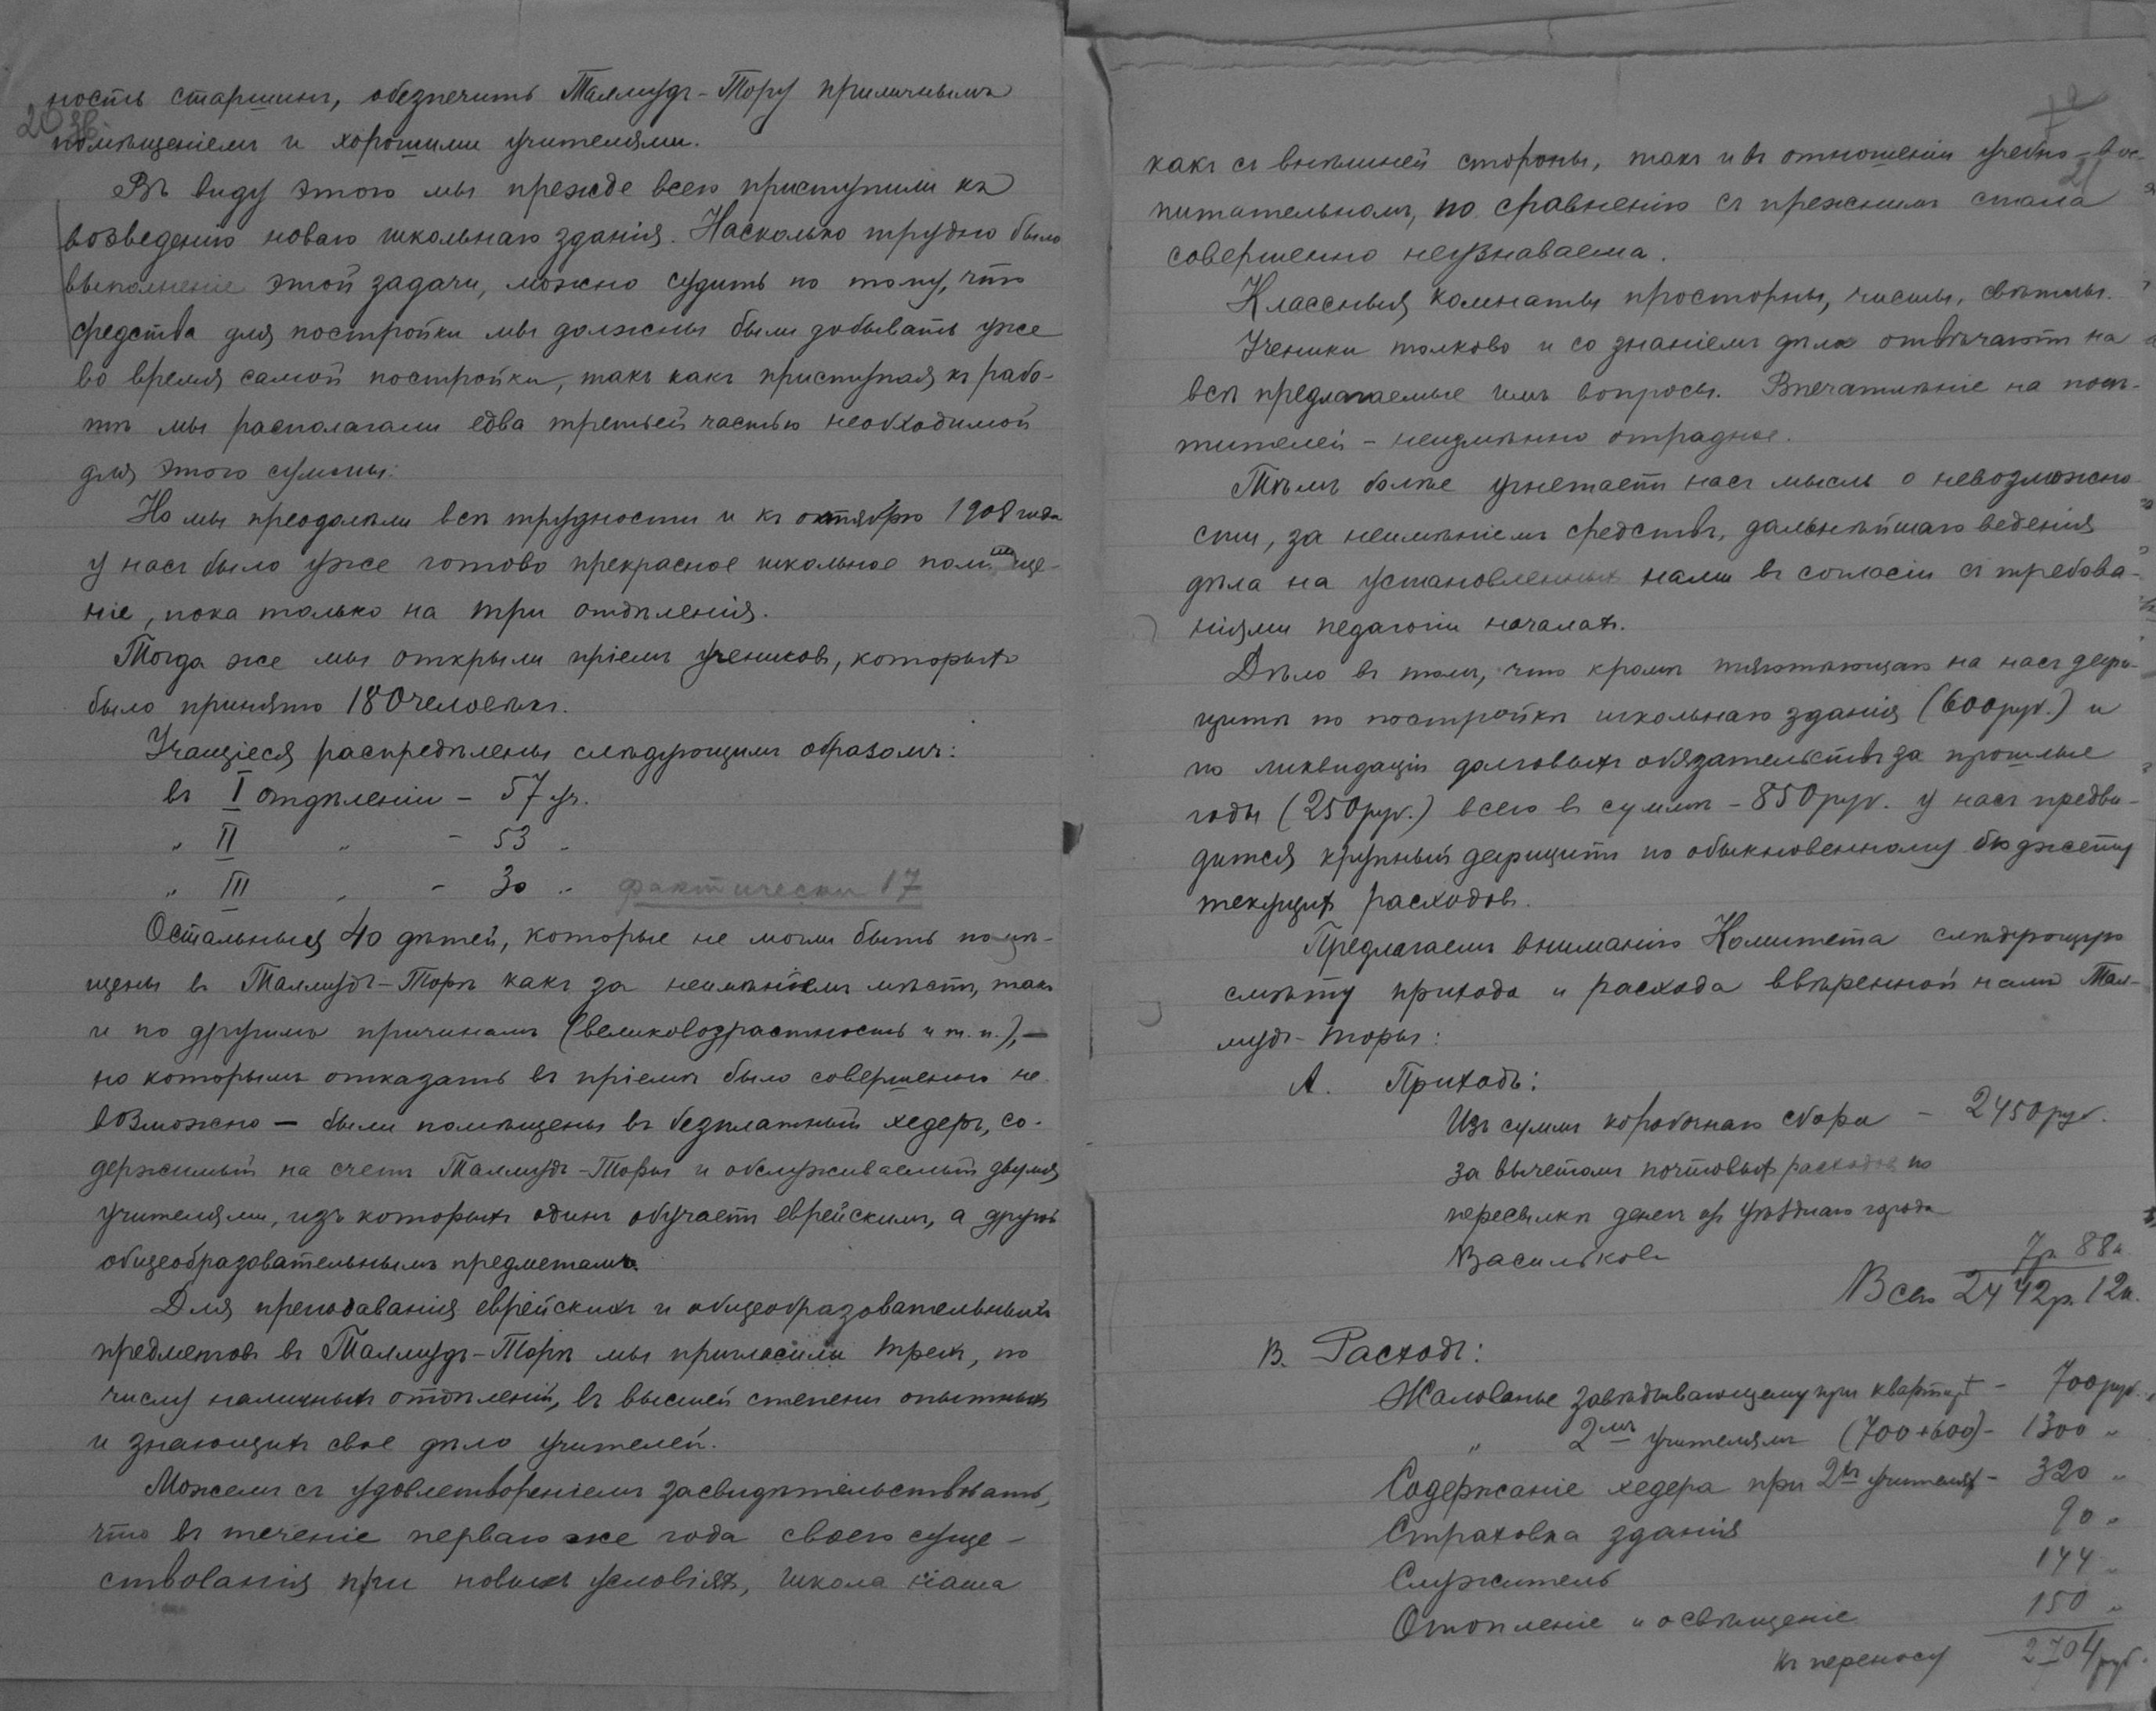 ность старшинъ, обезпечить Талмудъ-Тору приличнымъ
помѣщеніемъ и хорошими учителями.
Въ виду этого мы прежде всего приступили къ
возведенію новаго школьнаго зданія. Насколько трудно было
выполненіе этой задачи, можно судить по тому, что
средства для постройки мы должны были добывать уже
во время самой постройки, такъ какъ приступая къ рабо-
тѣ мы располагали едва третьей частью необходимой
для этого суммы.
Но мы преодолѣли всѣ трудности и къ октябрю 1908 года
у насъ было уже готово прекрасное школьное помѣще-
ніе, пока только на три отдѣленія.
Тогда же мы открыли пріемъ учениковъ, которыхъ
было принято 180 человѣкъ.
Учащіеся распредѣлены слѣдующимъ образомъ:
въ I отдѣленіи - 57 уч.
" II " - 53 "
" III " - 30 " фактически 17
Остальныя 40 дѣтей, которые не могли быть помѣ-
щены въ Талмудъ-Торѣ какъ за неимѣніемъ мѣстъ, такъ
и по другимъ причинамъ (великовозрастность и т. п.), —
но которымъ отказать въ пріемѣ было совершенно не-
возможно — были помѣщены въ безплатный хедеръ, со-
держимый на счетъ Талмудъ-Торы и обслуживаемый двумя
учителями, изъ которыхъ одинъ обучаетъ еврейскимъ, а другой
общеобразовательнымъ предметамъ.
Для преподаванія еврейскихъ и общеобразовательныхъ
предметовъ въ Талмудъ-Торѣ мы пригласили трехъ, по
числу наличныхъ отдѣленій, въ высшей степени опытныхъ
и знающихъ свое дѣло учителей.
Можемъ съ удовлетвореніемъ засвидѣтельствовать,
что въ теченіе перваго же года своего суще-
ствованія при новыхъ условіяхъ, школа наша
20 об.
21
какъ съ внѣшней стороны, такъ и въ отношеніи учебно-вос-
питательномъ, по сравненію съ прежнимъ стала
совершенно неузнаваема.
Классныя комнаты просторны, чисты, свѣтлы.
Ученики толково и со знаніемъ дѣла отвѣчаютъ на
всѣ предлагаемые имъ вопросы. Впечатлѣніе на посѣ-
тителей - неизмѣнно отрадное.
Тѣмъ болѣе угнетаетъ насъ мысль о невозможно-
сти, за неимѣніемъ средствъ, дальнѣйшаго веденія
дѣла на установленныхъ нами въ согласіи съ требова-
ніями педагогіи началахъ.
Дѣло въ томъ, что кромѣ тяготѣющаго на насъ дефи-
цита по постройкѣ школьнаго зданія (600 руб.) и
по ликвидаціи долговыхъ обязательствъ за прошлые
годы (250 руб.) всего въ суммѣ - 850 руб. у насъ предви-
дится крупный дефицитъ по обыкновенному бюджету
текущихъ расходовъ.
Предлагаемъ вниманію Комитета слѣдующую
смѣту прихода и расхода ввѣренной намъ Тал-
мудъ-Торы:
А. Приходъ:
Изъ суммъ коробочнаго сбора - 2450 руб.
за вычетомъ почтовыхъ расходовъ по
пересылкѣ денегъ изъ уѣзднаго города
Василькова 7 р. 88 к.
Всего 2442 р. 12 к.
В. Расходъ:
Жалованье завѣдывающему при квартирѣ - 700 руб.
" 2мъ учителямъ (700+600) - 1300 "
Содержаніе хедера при 2хъ учителяхъ - 320 "
Страховка зданія 90 "
Служитель 144 "
Отопленіе и освѣщеніе 150 "
Къ переносу 2704 руб.